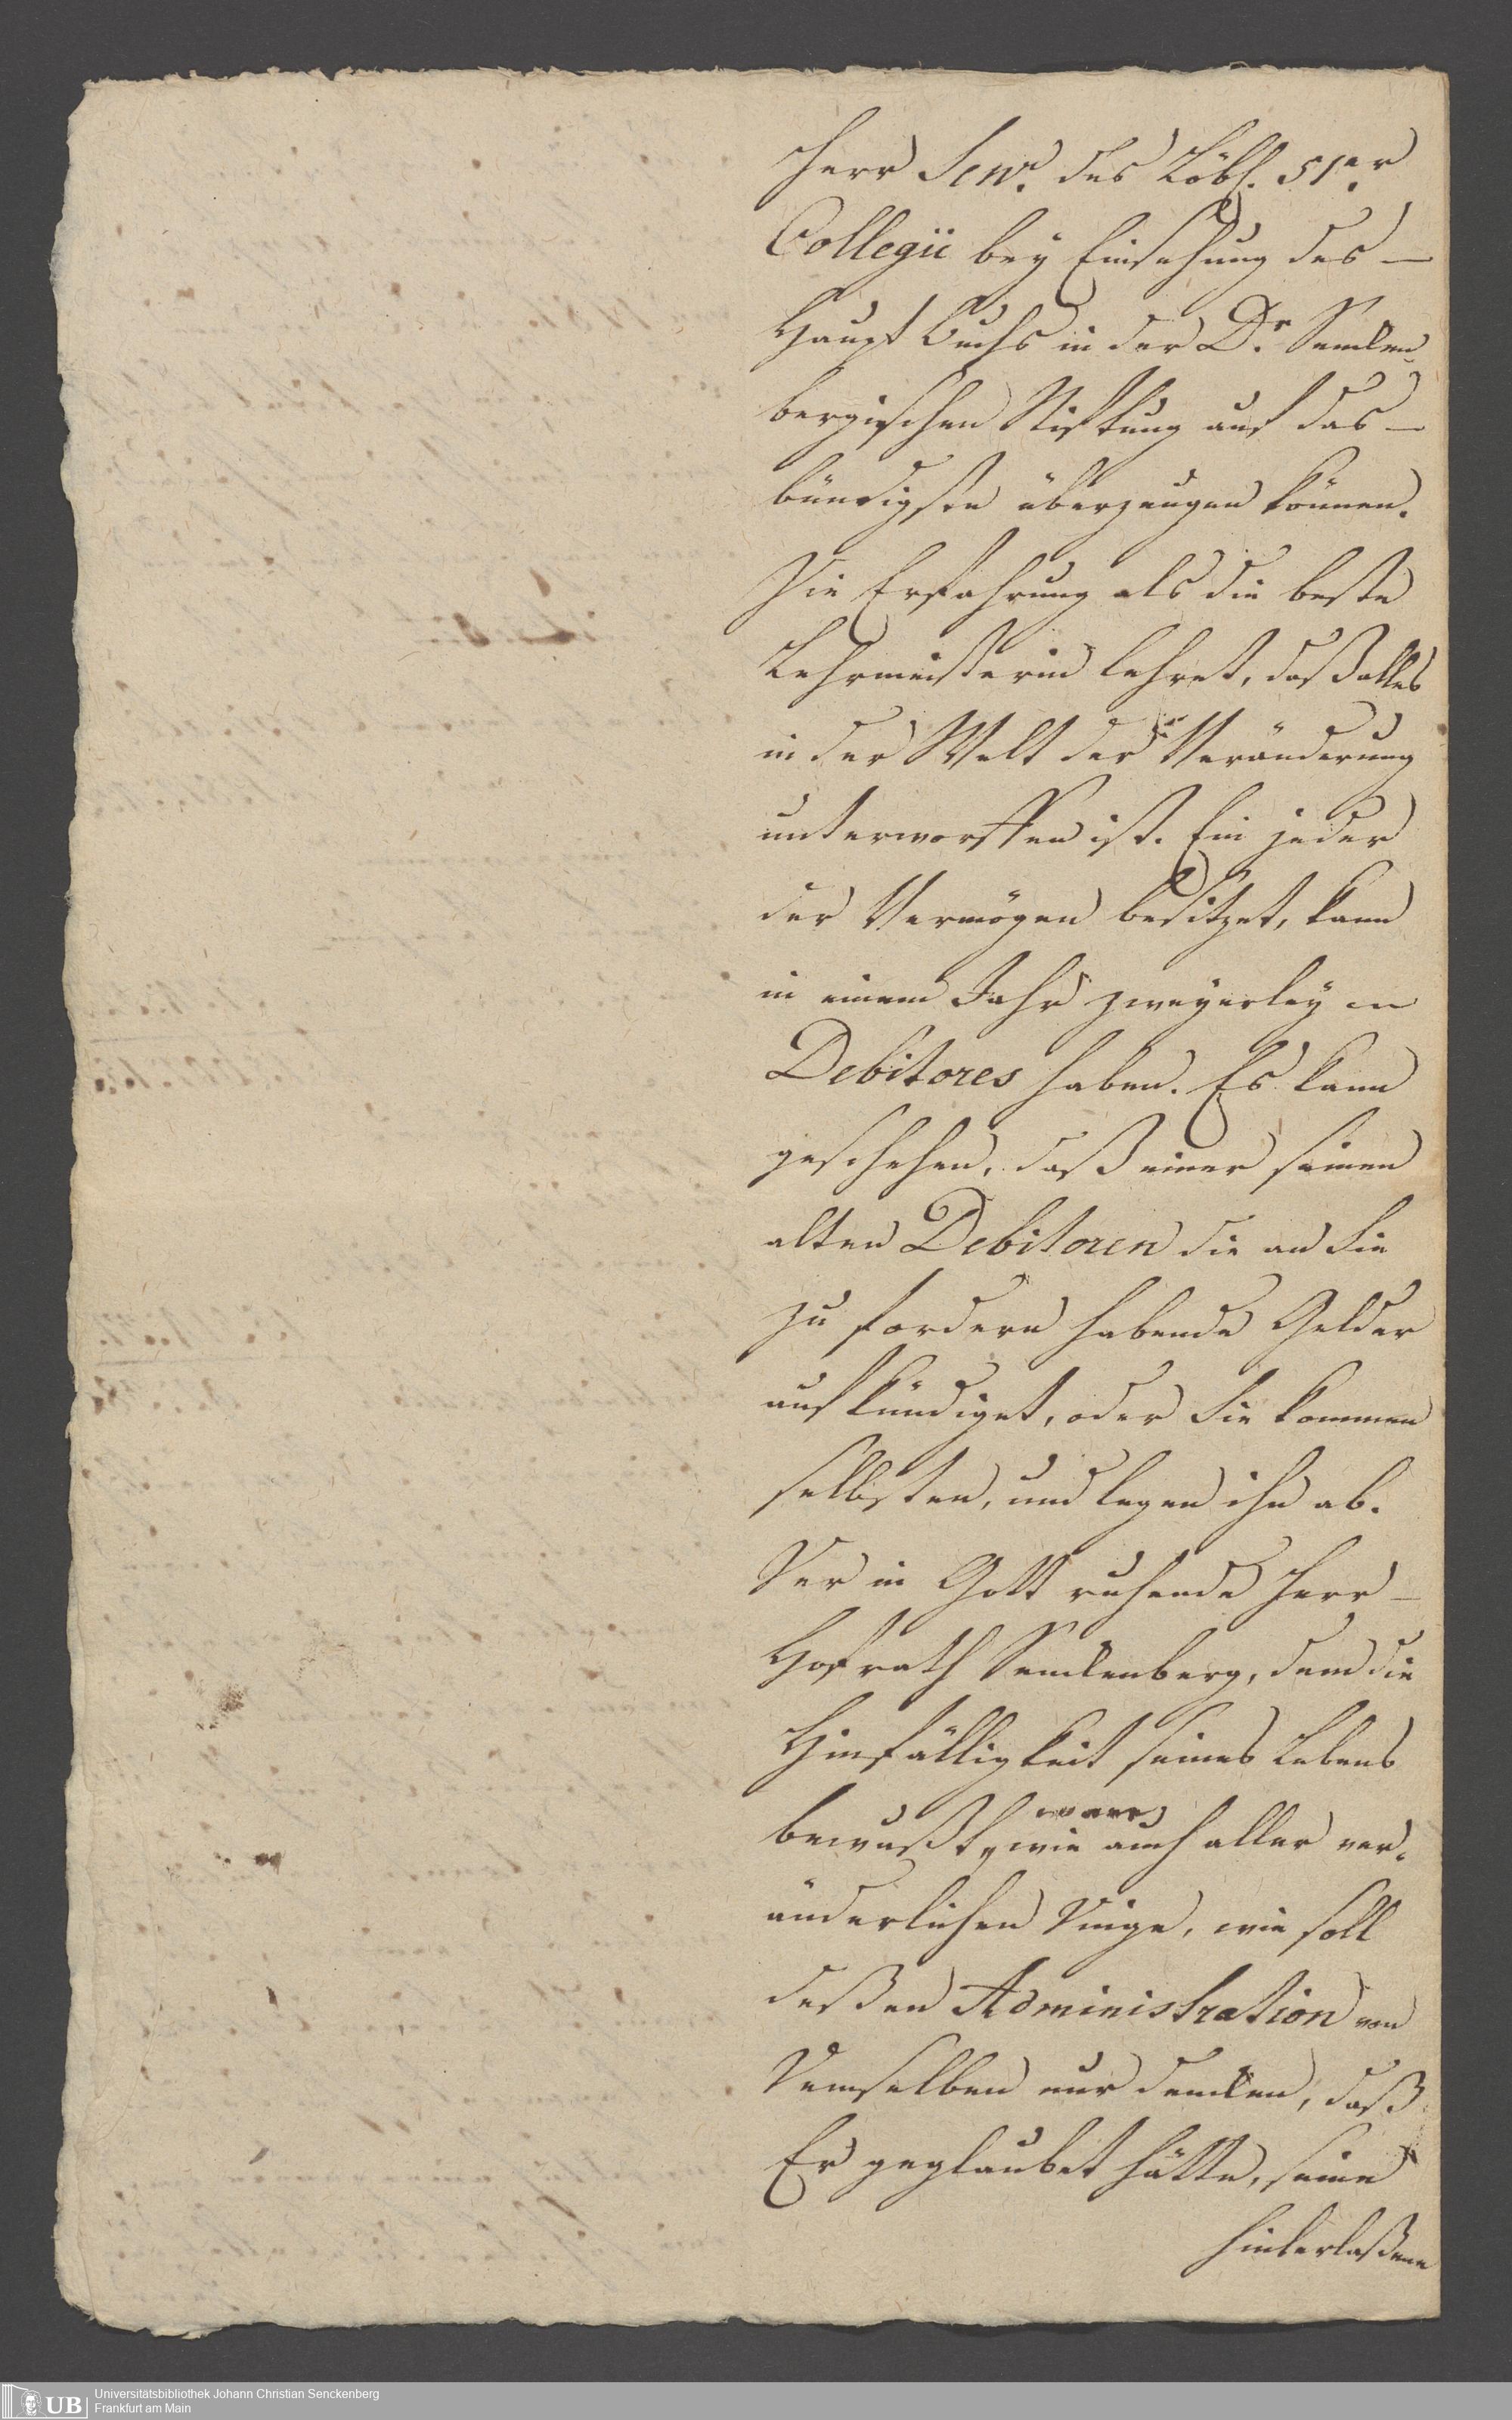 Herr Senr. des Löbl. 51er
Collegii bey Einsehung des —
Haupt buchs in der Dr. Senken¬
bergischen Stiftung auf das —
bündigste überzeugen können.
Die Erfahrung als die beste
Lehrmeisterin lehret, daß alles
in der Welt der Veränderung
unterworffen ist. Ein jeder
der Vermögen besitzet, kann
in einem Jahr zweyerley
Debitores haben. Es kann
geschehen, daß einer seinen
alten Debitoren die an Sie
zu fordern habende Gelder
aufkündiget, oder Sie kommen
selbsten, und legen ihn ab.
Der in Gott ruhende Herr —
Hofrath Senkenberg, dem die
Hinfälligkeit seines Lebens
bewußt ware, wie auch aller ver¬
änderlichen Dinge, wie soll
deßen Administration von
Demselben nur denken, daß
Er geglaubet hätte, seine
hinterlaßene
UB
Universitätsbibliothek Johann Christian Senckenberg
Frankfurt am Main